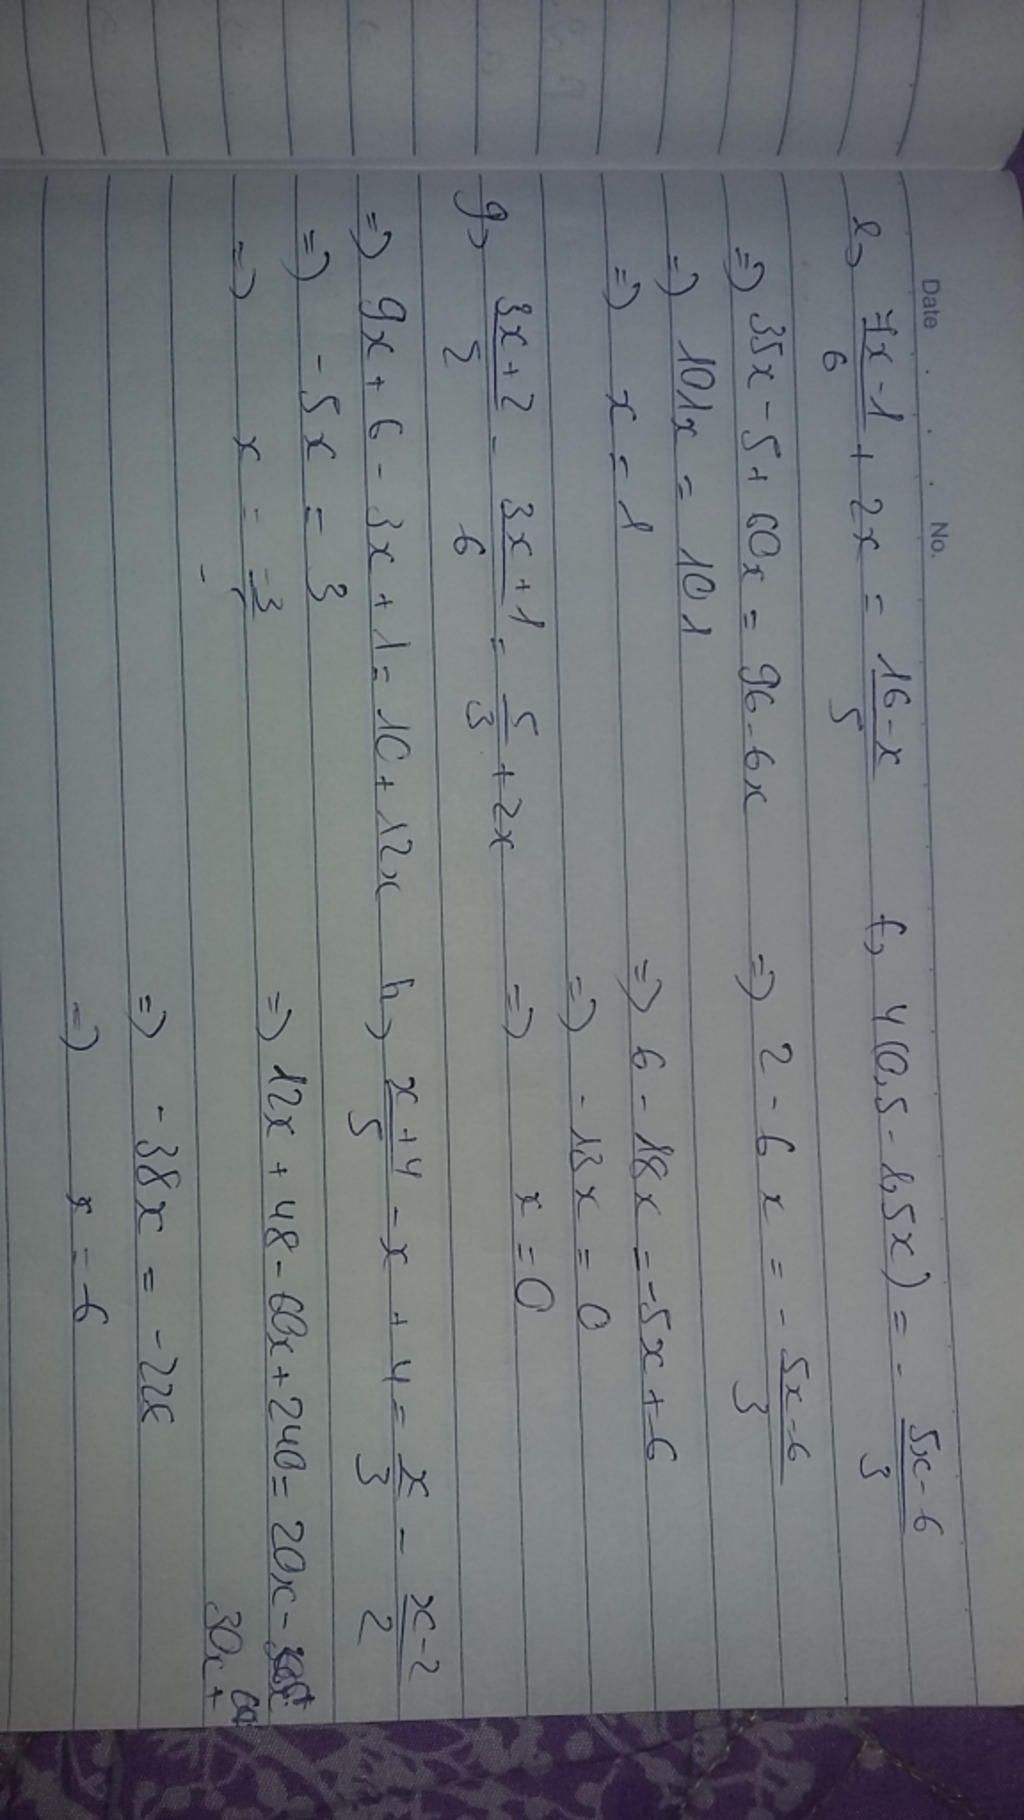 Date No.
e, 7x-1/6 + 2x = 16-x/5
=) 35x - 5 + 60x = 96 - 6x
=) 101x = 101
=) x = 1
f, 4(0,5 - 1,5x) = - 5x-6/3
=) 2 - 6x = - 5x-6/3
=) 6 - 18x = -5x + 6
=) - 13x = 0
=) x = 0
g, 3x+2/2 - 3x+1/6 = 5/3 + 2x
=) 9x + 6 - 3x + 1 = 10 + 12x
=) - 5x = 3
=) x = -3
h, x+4/5 - x + 4 = x/3 - x-2/2
=) 12x + 48 - 60x + 240 = 20x -
30x + 60
=) - 38x = - 228
=) x = 6